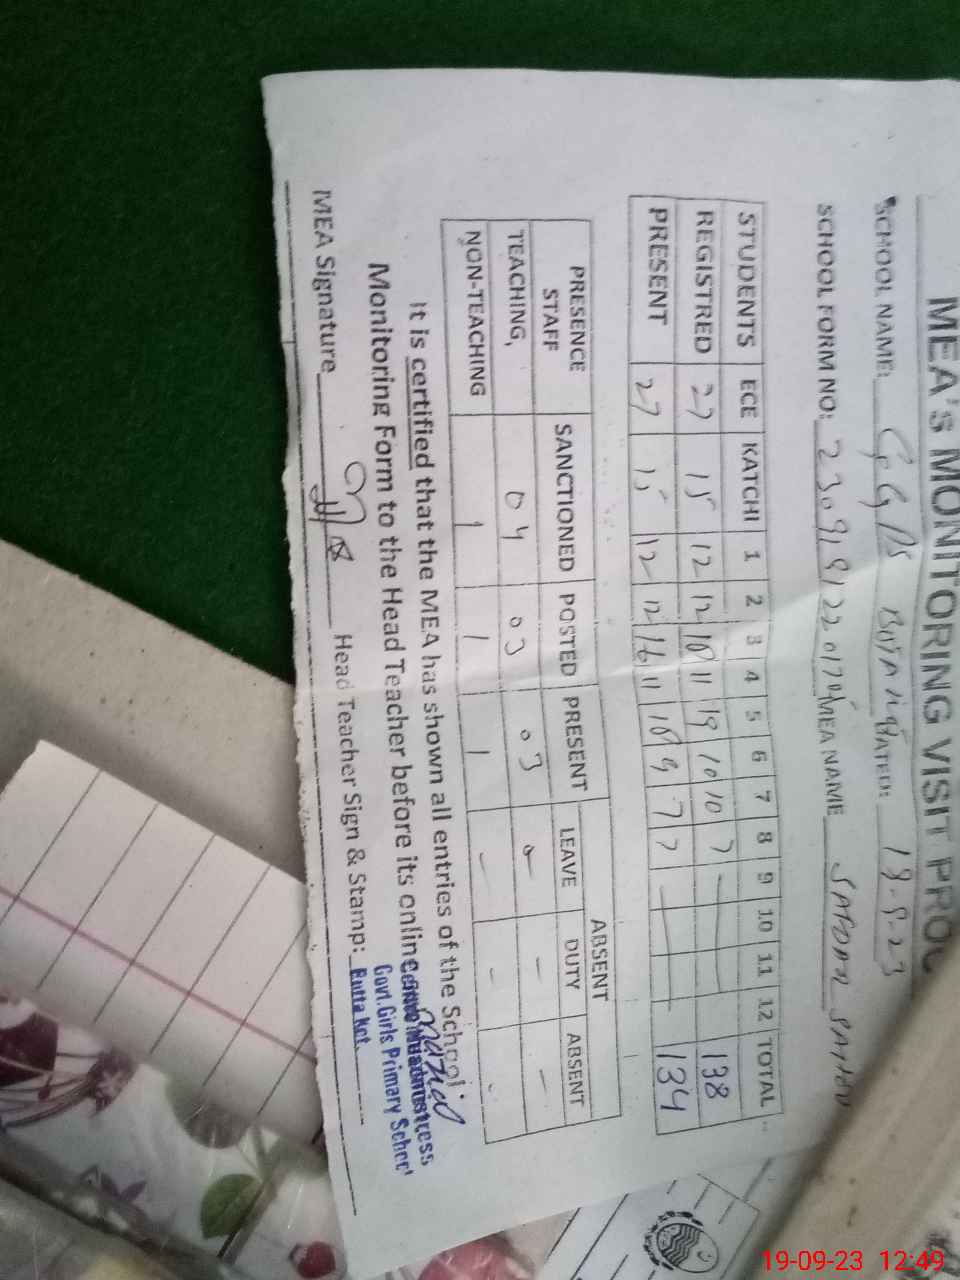 MEA's MONITORING VISIT PROO
SCHOOL NAME: GGPS DATED: 19-9-23
SCHOOL FORM NO: MEA NAME
STUDENTS ECE KATCHI 1 2 3 4 5 6 7 8 9 10 11 12 TOTAL
REGISTRED 27 15 12 12 11 19 10 10 7 — — 138
PRESENT 27 15 12 12 16 11 18 9 7 7 — — 134
PRESENCE STAFF SANCTIONED POSTED PRESENT ABSENT
LEAVE DUTY ABSENT
TEACHING, 04 03 03 0 — —
NON-TEACHING 1 1 1 — - -
It is certified that the MEA has shown all entries of the School
Monitoring Form to the Head Teacher before its online
MEA Signature Head Teacher Sign & Stamp:
Govt.Girls Primary School
19-09-23 12:49